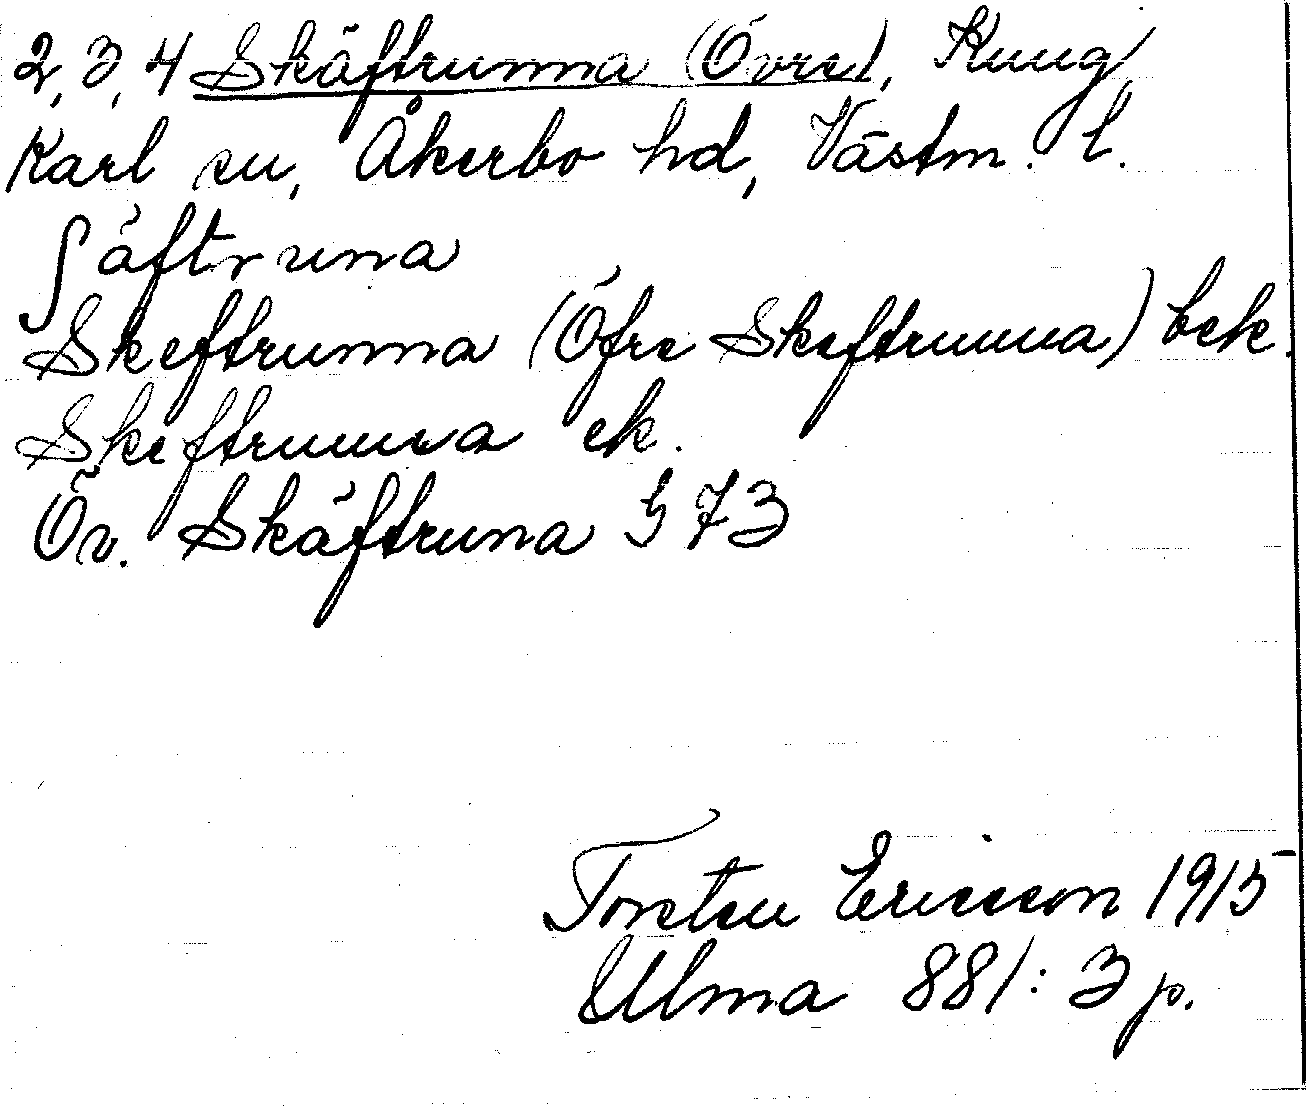 2, 3, 4 Skäftrunna (Övre), Kung
Karl sn, Åkerbo hd, Västm. l.
ʃäftruna
Skeftrunna (Öfre Skeftrunna) bek.
Skeftrunna ek.
Öv. Skäftruna G 73
Torsten Ericsson 1915
Ulma 881: 3 p.